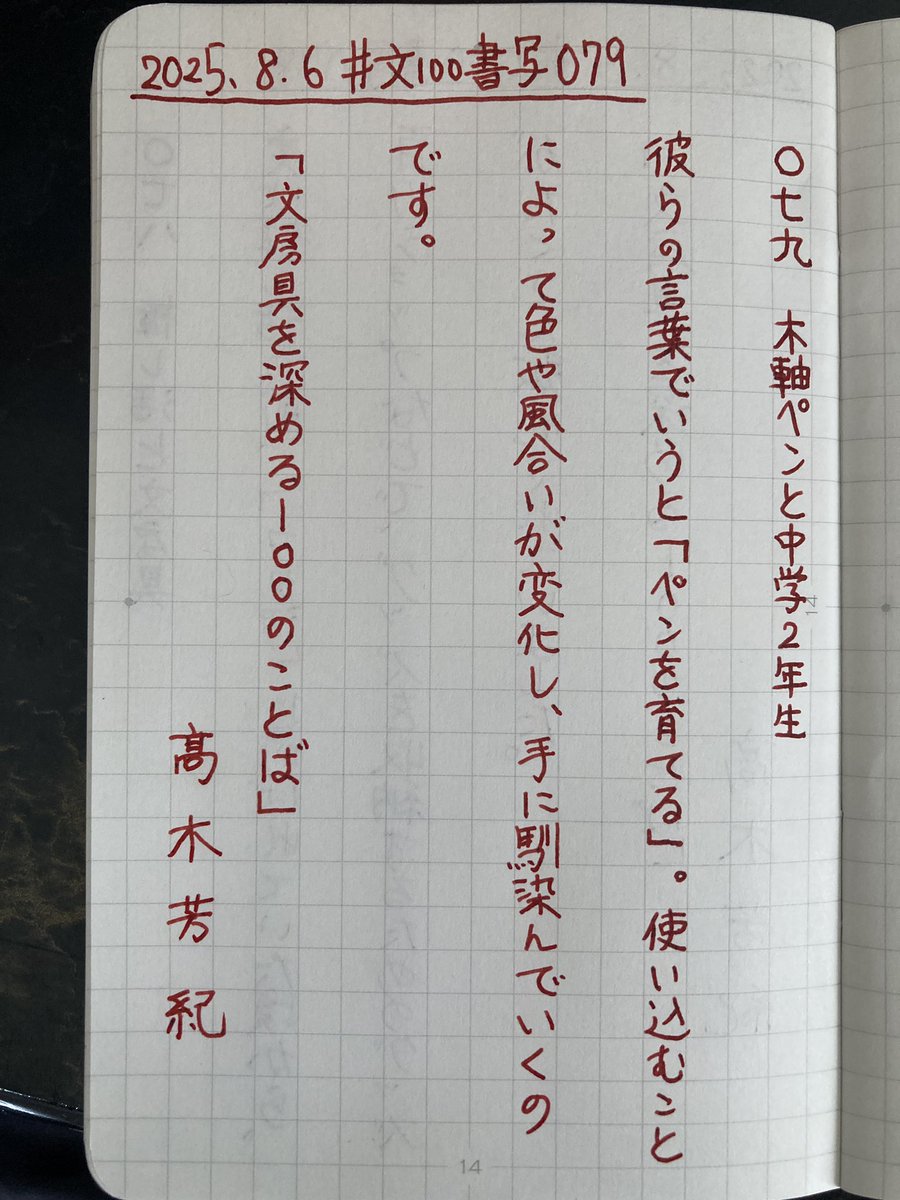 2025.8.6 #文100書写079
〇七九 木軸ペンと中学2年生
彼らの言葉でいうと「ペンを育てる」。使い込むこと
によって色や風合いが変化し、手に馴染んでいくの
です。
「文房具を深める一〇〇のことば」
髙木芳紀
14
14